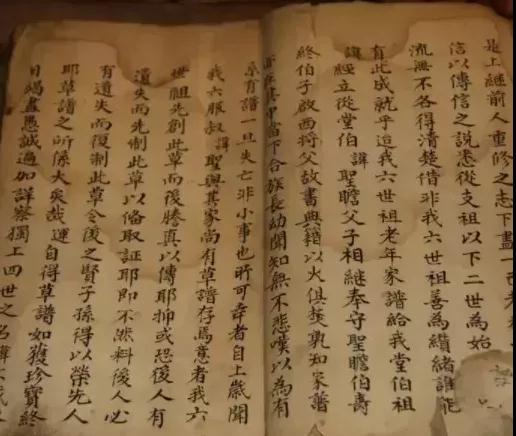 是上繼前人重修之志下盡一己考
信以傳信之說悉從支祖以下二世為始
流無不各得清楚借非我六世祖善為纘緒誰能
有此成就乎迨我六世祖老年家譜給我堂伯祖
諱經立從堂伯諱聖瞻父子相繼奉守聖瞻伯壽
終伯子啟西將父故書典籍以火俱焚孰知家譜
亦在其中當下合族長幼聞知無不悲嘆以為有
系有譜一旦失亡非小事也所可幸者自上歲聞
我六服叔諱聖與其家尚有草譜存焉意者我六
世祖先創此草而後謄真以傳耶抑或恐後人有
遺失而先制此草以備取証耶即不然料後人必
有遺失而復制此草令後之賢子孫得以榮先人
耶草譜之所係大矣哉運自得草譜如獲珍寶終
日竭盡愚誠遍加詳察獨上四世之名諱